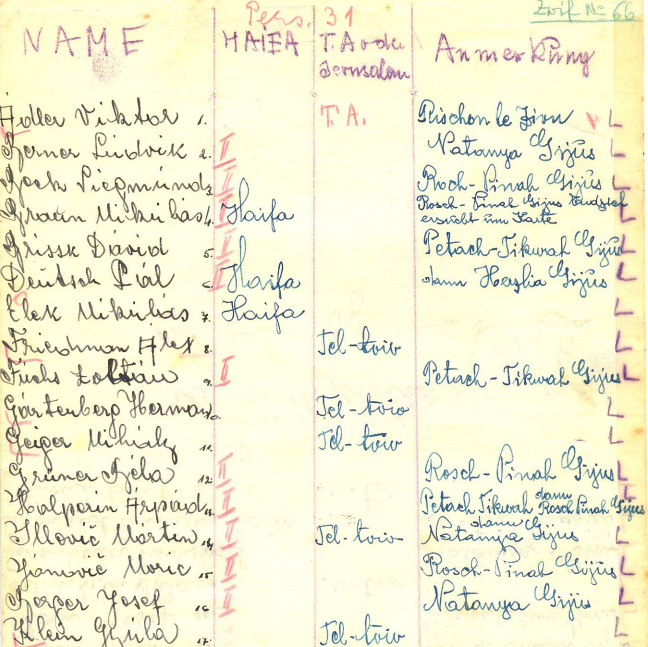 Pers. 31
Zrif № 66
NAME HAIFA T.A oder Anmerkung
Jerusalem
Adler Viktor 1. T.A. Rischon le Zion L
Berner Ludvik 2. II Natanya Gijus L
Bock Siegmund 3. II Roch-Pinah Gijus L
Braun Mikulas 4. II Haifa Rosch-Pinah Gijus L
ersucht um Karte
Brissk Dávid 5. II Petach-Tikwah Gijus L
Deutsch Pál 6. II Haifa dann Herzlia Gijus L
Elek Mikulás 7. Haifa L
Friedman Alex 8. Tel-Aviv L
Fuchs Zoltán 9. II Petach-Tikwah Gijus L
Gärtenberg Herman 10. Tel-Aviv L
Geiger Mihály 11. Tel-Aviv L
Gruner Béla 12. II Rosch-Pinah Gijus L
Halperin Arpád 13. II Petach Tikwah dann Rosch Pinah Gijus L
Illovič Martin 14. I Tel-Aviv Natanya dann Gijus L
Janovič Moric 15. II Rosch-Pinah Gijus L
Josef 16. II Natanya Gijus L
Klein Gyula 17. Tel-Aviv L